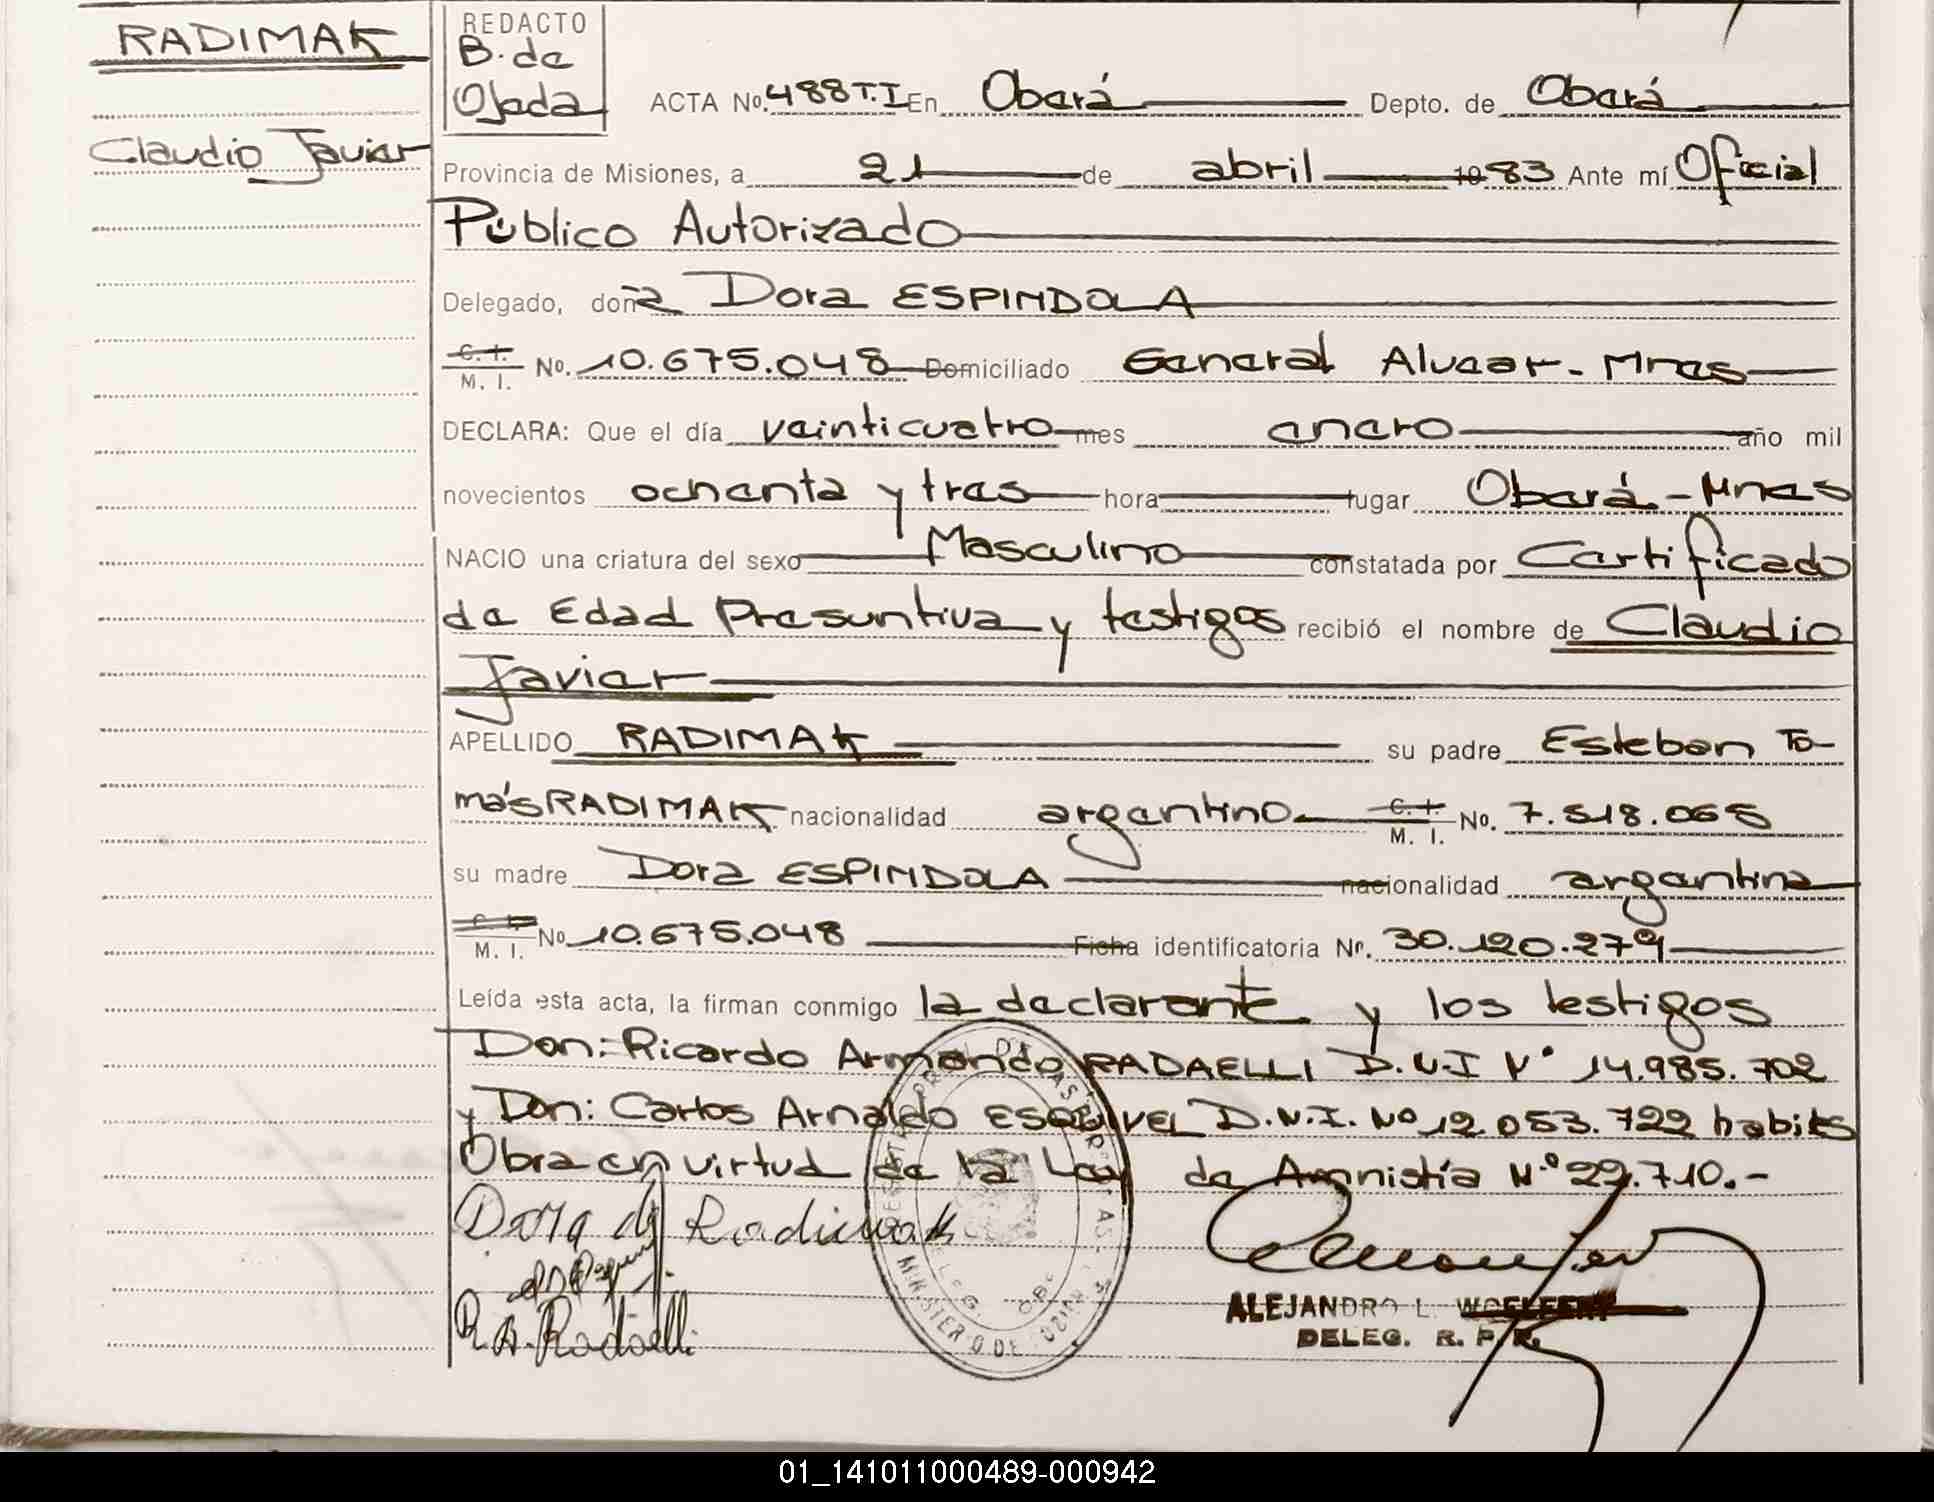 RADIMAK
Claudio Javier
REDACTO
B. de
Ojeda
ACTA No. 488 T.I En Oberá Depto. de Oberá
Provincia de Misiones, a 21 de abril 1983 Ante mí Oficial
Público Autorizado
Delegado, doña Dora ESPINDOLA
C. I.
M. I. No. 10.675.048 Domiciliado General Alvear - Mnes
DECLARA: Que el día veinticuatro mes enero año mil
novecientos ochenta y tres hora lugar Oberá - Mnes
NACIO una criatura del sexo Masculino constatada por Certificado
de Edad Presuntiva y testigos recibió el nombre de Claudio
Javier
APELLIDO RADIMAK su padre Esteban To-
más RADIMAK nacionalidad argentino C. I.
M. I. No. 7.518.065
su madre Dora ESPINDOLA nacionalidad argentina
C. I.
M. I. No 10.675.048 Ficha identificatoria Nº. 30.120.279
Leída esta acta, la firman conmigo la declarante y los testigos
Don: Ricardo Armando RADAELLI D.N.I Nº 14.985.702
y Don: Carlos Arnaldo ESQUIVEL D.N.I. Nº 12.053.722 habiles
Obra en virtud de la Ley de Amnistía N.º 22.710.-
Dora de Radimak
R.A. Radaelli
ALEJANDRO L.
DELEG. R. P.
MINISTERIO DE
01_141011000489-000942